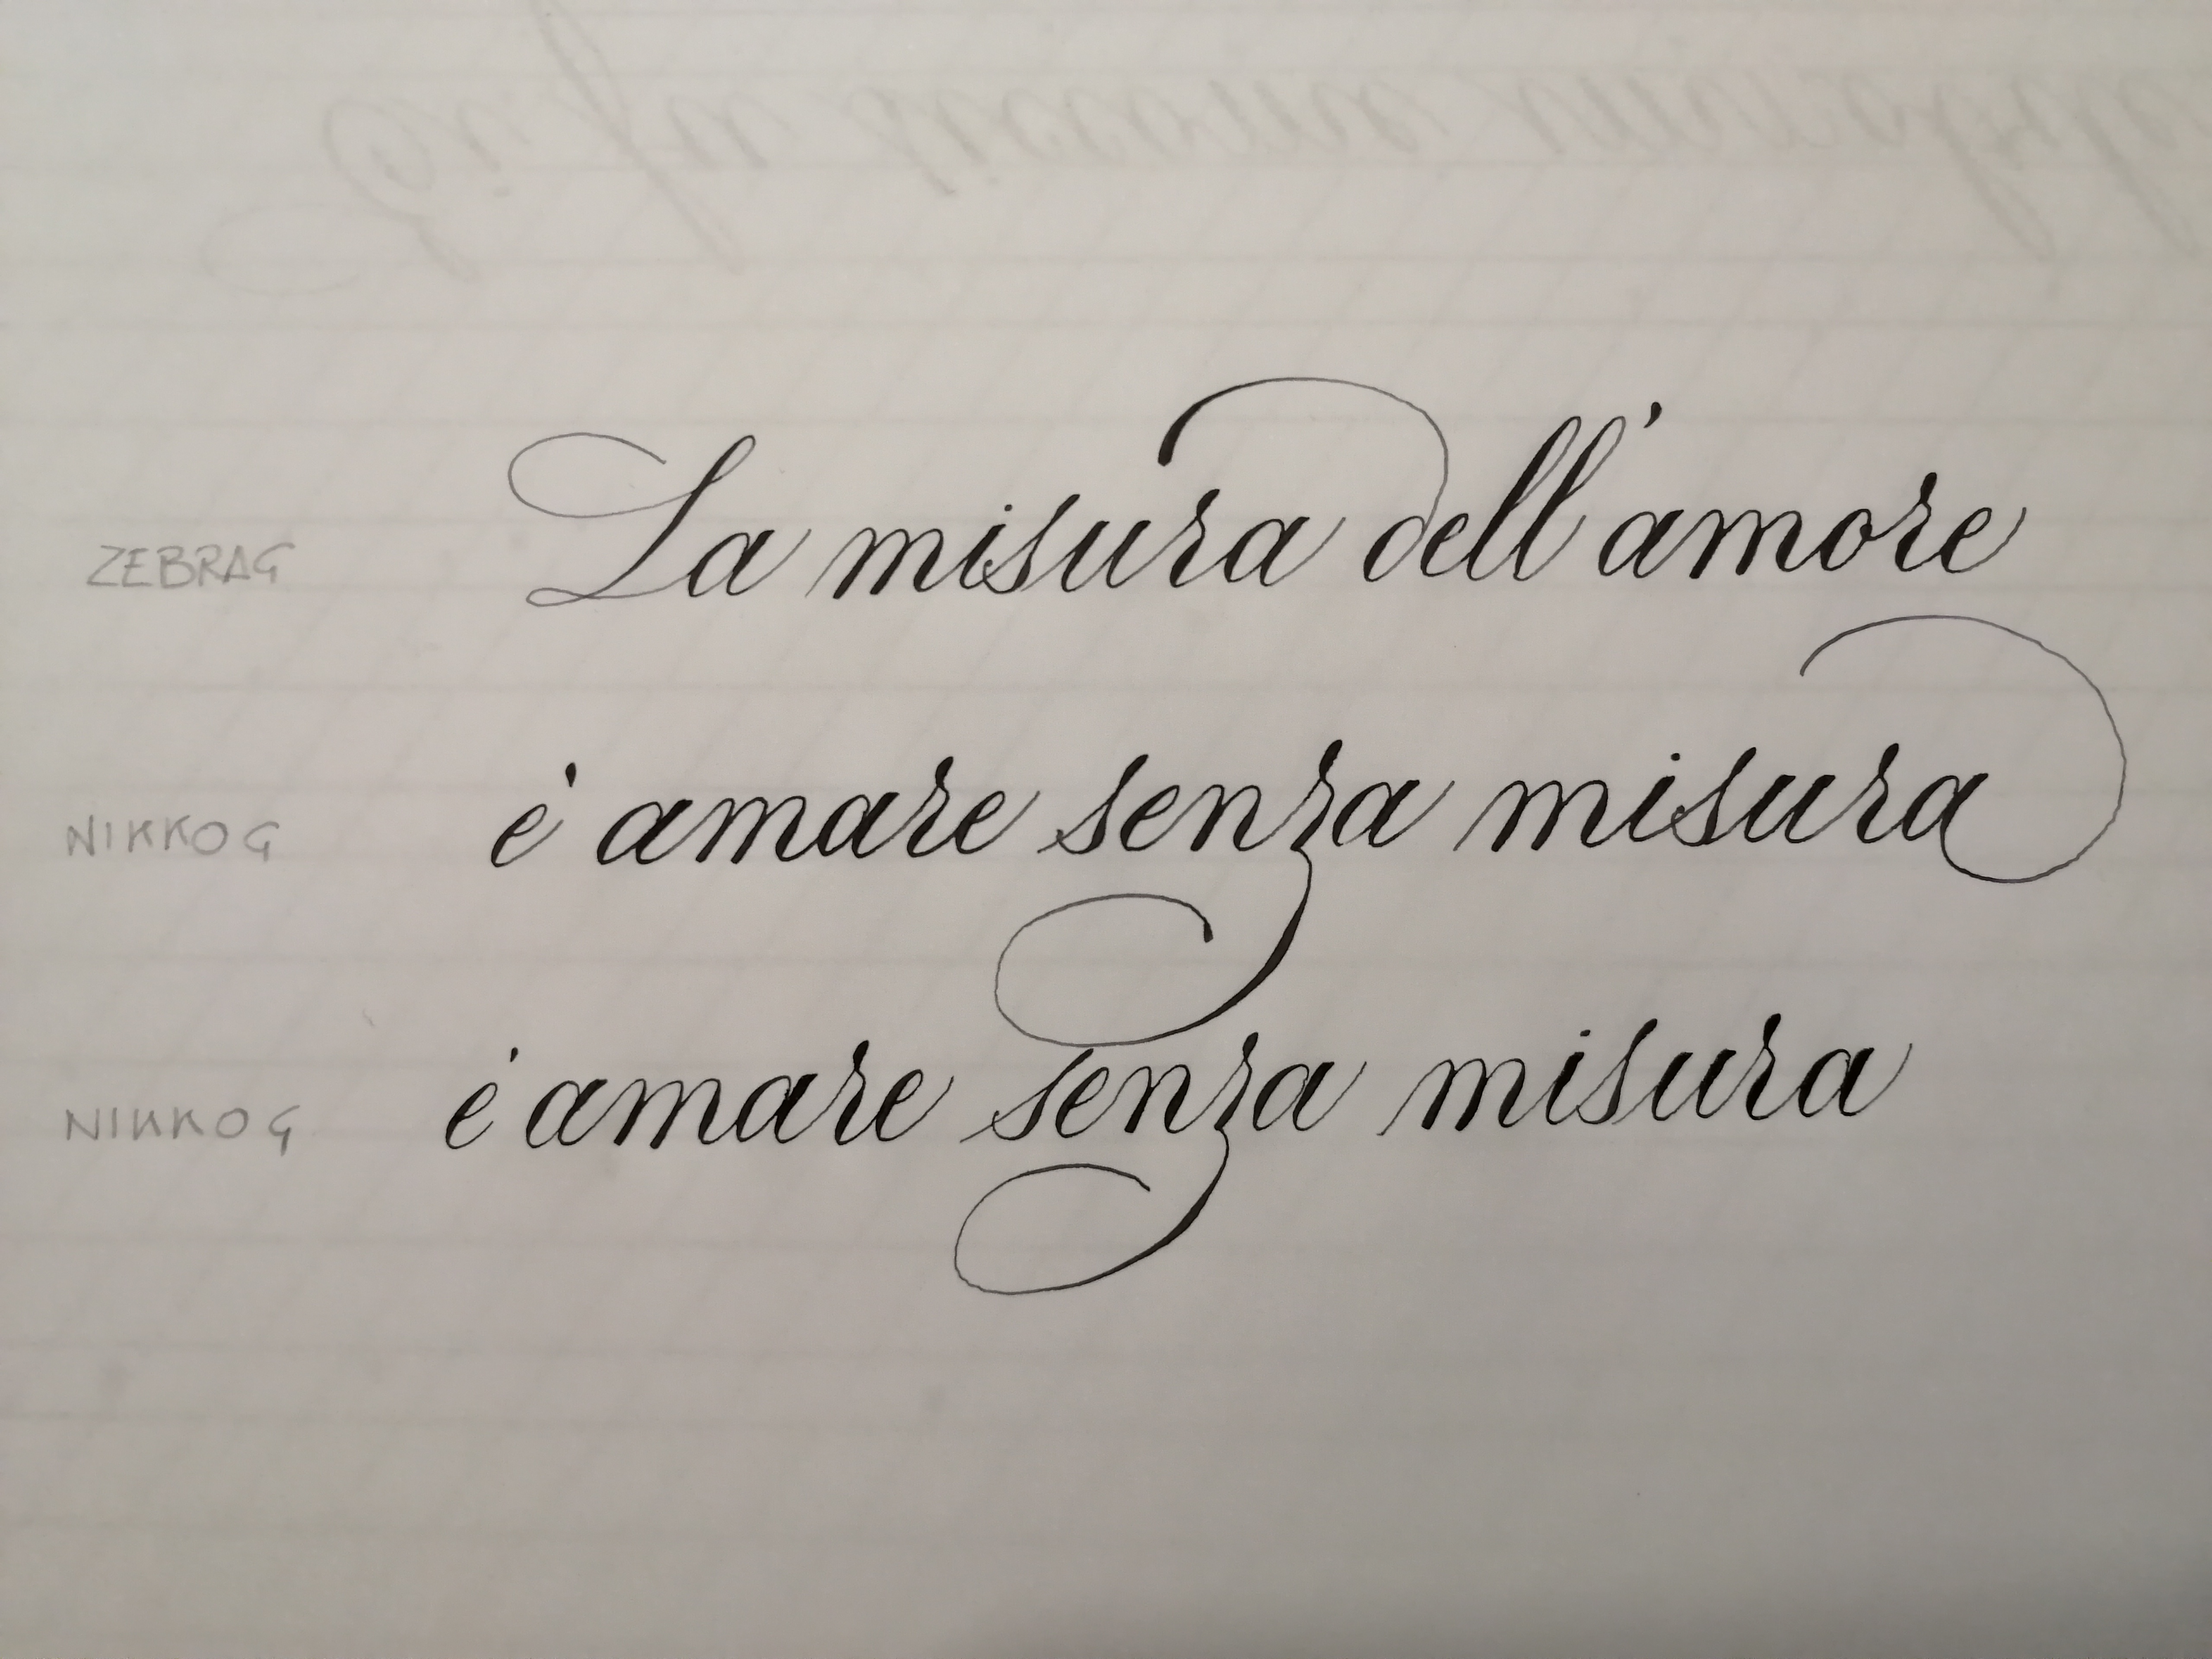 ZEBRA G La misura dell'amore
NIKKO G è amare senza misura
NIKKO G è amare senza misura